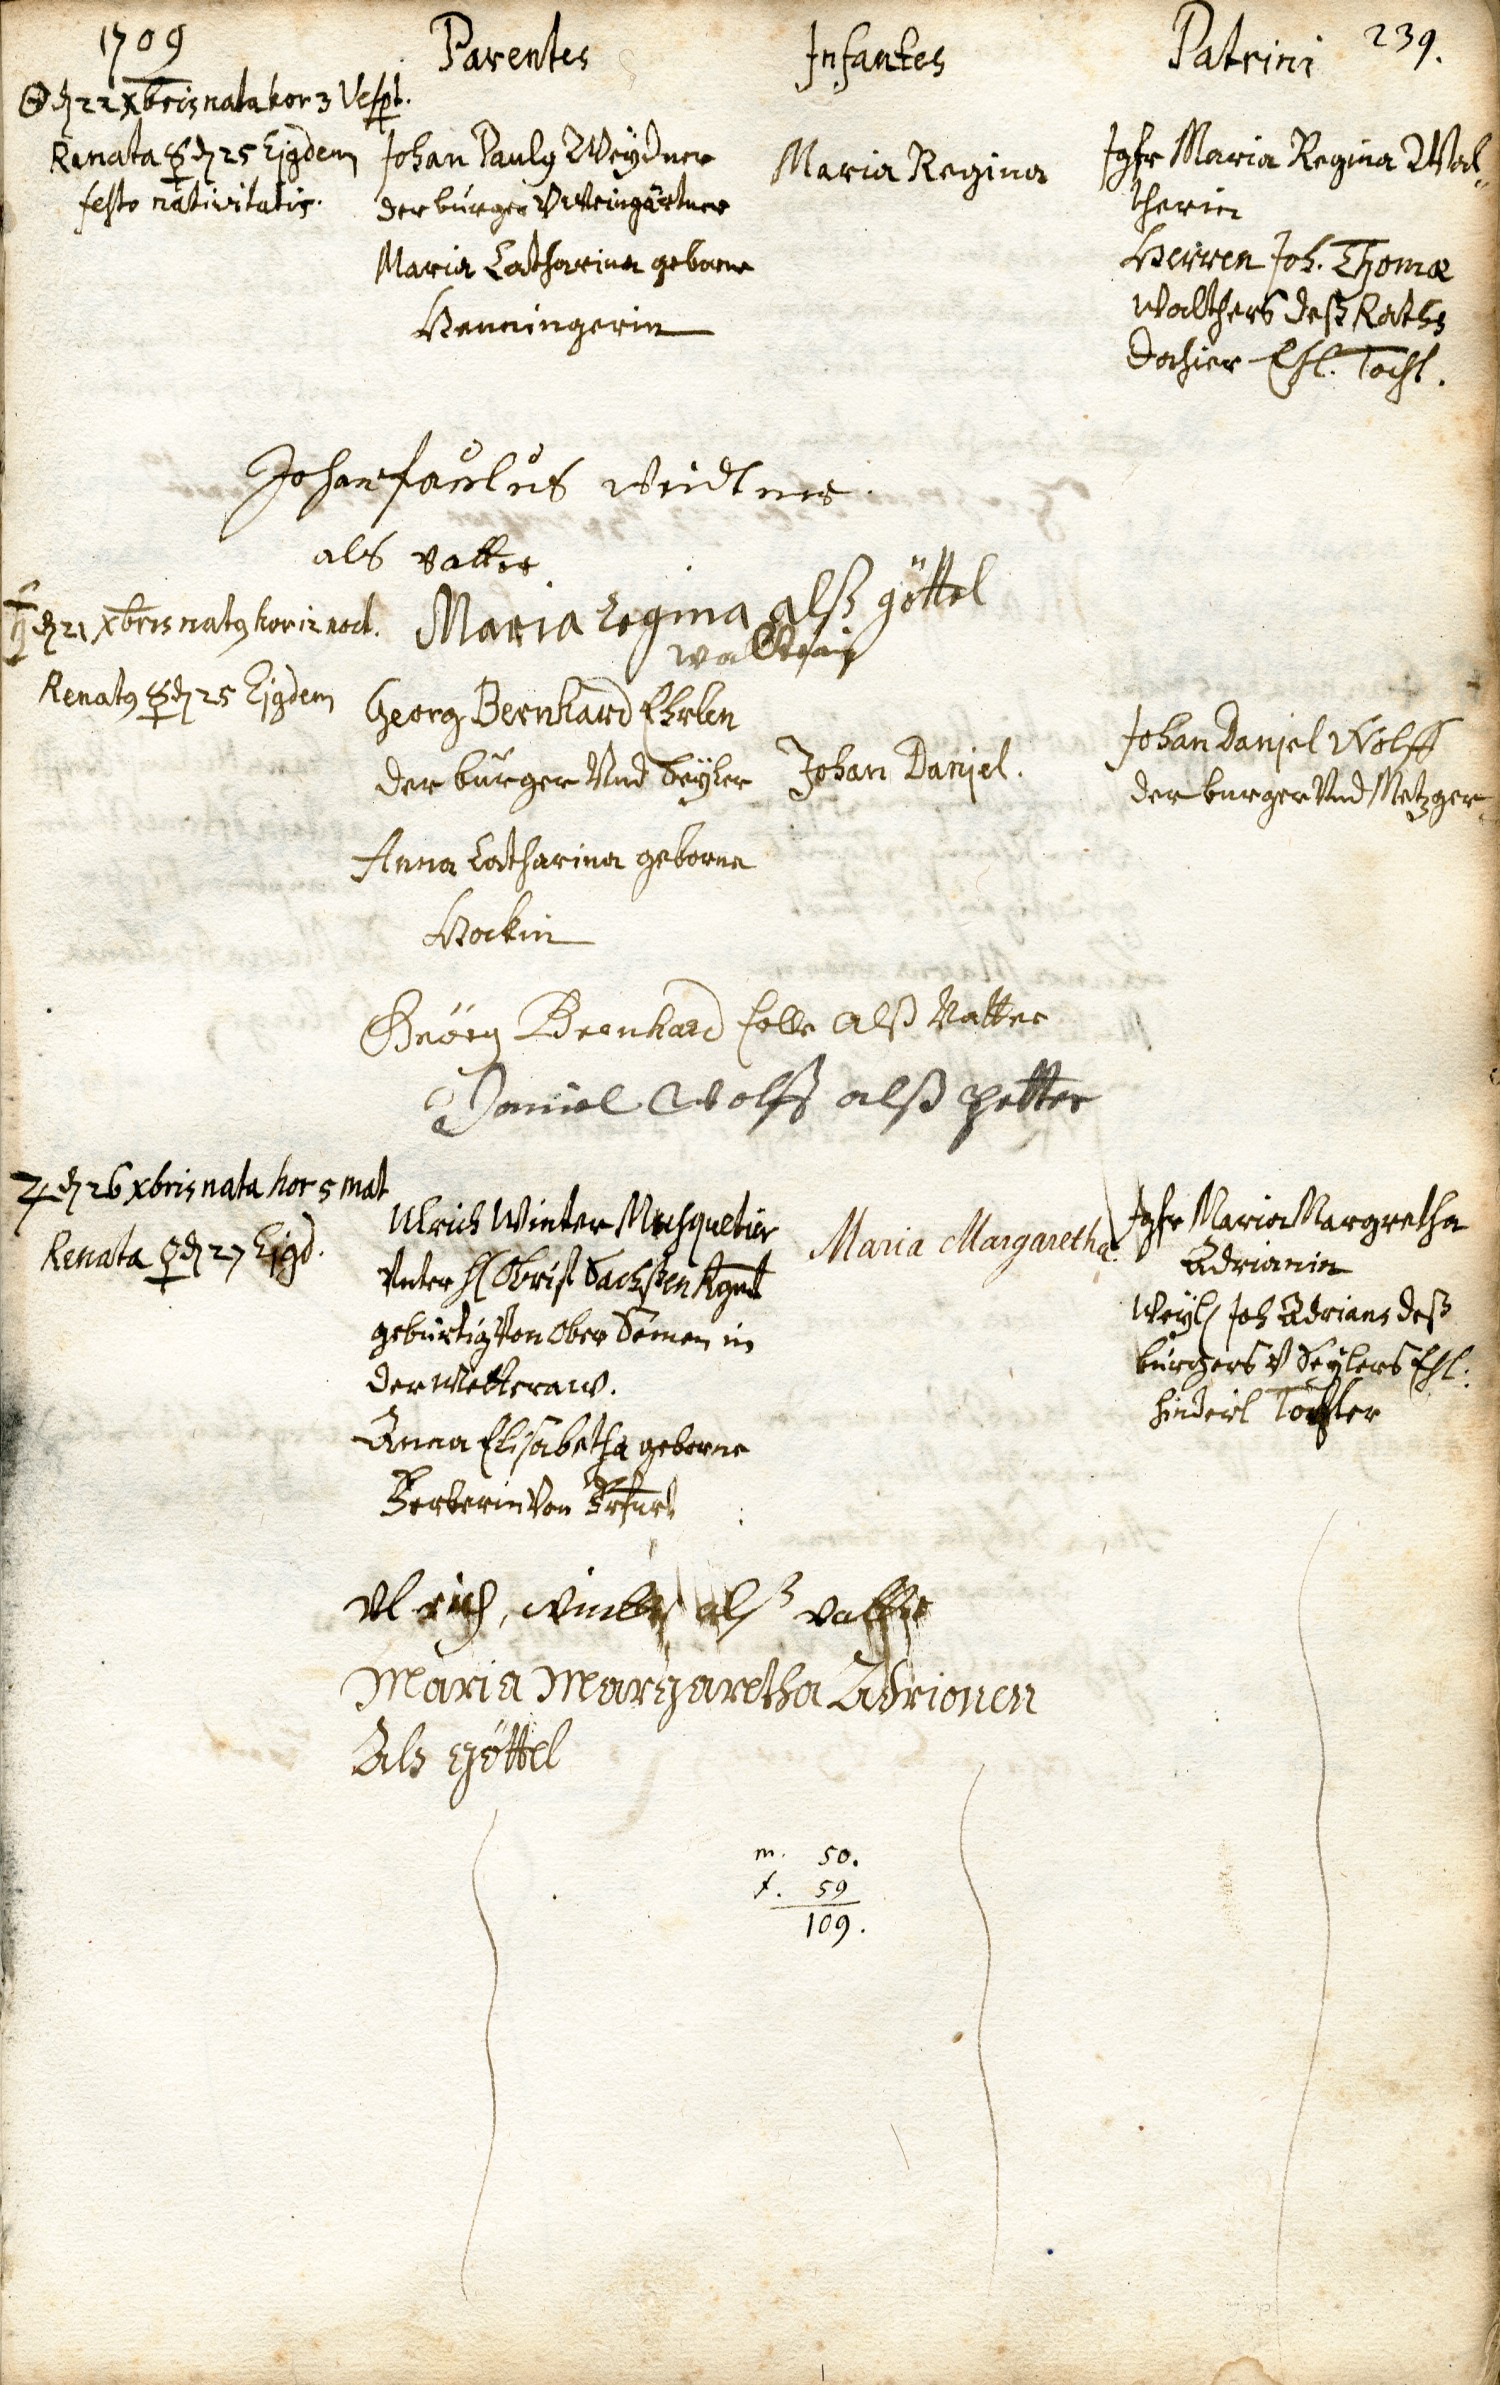 1709 Parentes Infantes Patrini 239.
☉ d 22 Xbris nata hor 3 Vespt.
Renata ☿ d 25 Ejqdem
festo nativitatis.
Johan Paulq Weydner
der burger V Weingärtner
Maria Catharina geborne
Henningerin
Maria Regina
Jgfr Maria Regina Wal-
therin
Herren Joh. Thomæ
Walthers deß Raths
dahier Ehl. Tocht.
Johan paulus weidtner.
als vatter
Maria Regina alß göttel
♄ d 21 Xbris natq hor 12 noct.
Renatq ☿ d 25 Ejqdem
Georg Bernhard Ehrlen
der burger Vnd Seyler
Anna Catharina geborne
Hockin
Johan Daniel.
Johan Daniel Wolff
der burger Vnd Metzger
Geörg Bernhard alß Vatter
Daniel Wolff alß petter
♃ d 26 xbris nata hor 5 mat
Renata ♀ d 27 Ejqd.
Ulrich Winter Musquetier
Vnter H Obrist Sachßen Rgmt
gebürtig Von Ober Semen in
der Wetteraw.
Anna Elisabetha geborne
Gerberin Von Erfurt
Maria Margaretha.
Jgfr Maria Margretha
Adrianin
Weyl Joh Adrians deß
burgers V Seylers Ehl.
hinderl Tochter
Vlrich, winter alß vatter
Maria Margaretha Adrionen
Als göttel
m. 50.
f. 59
109.